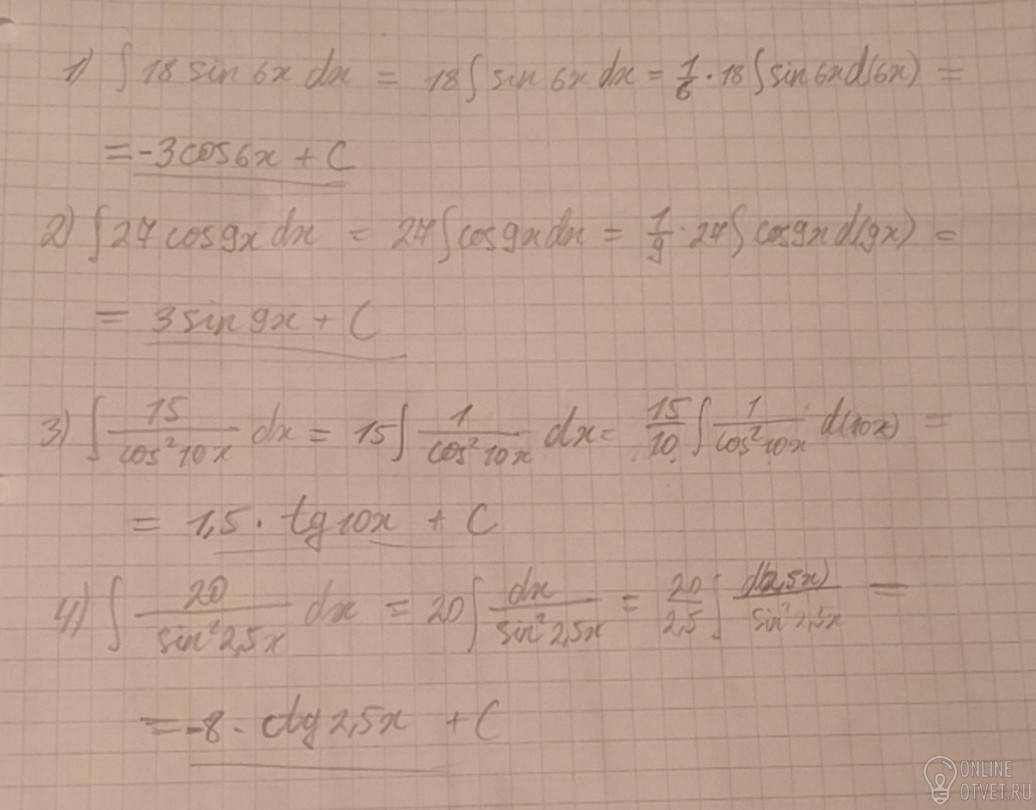 1) ∫ 18 sin 6x dx = 18 ∫ sin 6x dx = 1/6 · 18 ∫ sin 6x d(6x) =
= -3 cos 6x + C
2) ∫ 27 cos 9x dx = 27 ∫ cos 9x dx = 1/9 · 27 ∫ cos 9x d(9x) =
= 3 sin 9x + C
3) ∫ 15/cos² 10x dx = 15 ∫ 1/cos² 10x dx = 15/10 ∫ 1/cos² 10x d(10x) =
= 1,5 · tg 10x + C
4) ∫ 20/sin² 2,5x dx = 20 ∫ dx/sin² 2,5x = 20/2,5 ∫ d(2,5x)/sin² 2,5x =
= -8 · ctg 2,5x + C
ONLINE
OTVET.RU